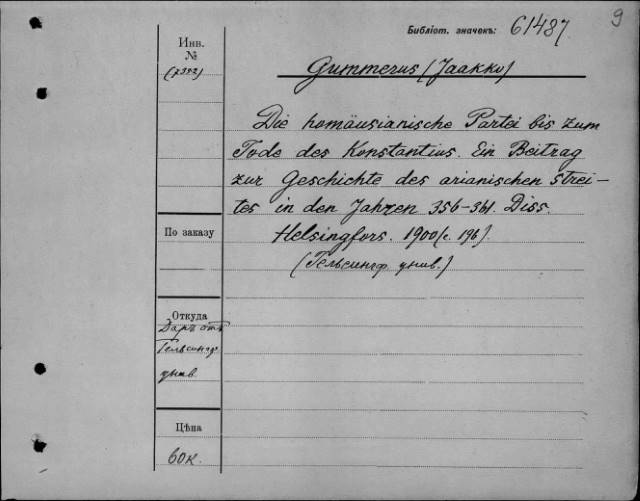 9
Библіот. значекъ: 61487
Инв.
№
(7392)
Gummerus (Jaakko)
Die homäusianische Partei bis zum
Tode des Konstantius. Ein Beitrag
zur Geschichte des arianischen Strei-
tes in den Jahren 356-361. Diss.
Helsingfors. 1900 (с. 196).
(Гельсингф. унив.)
По заказу
Откуда
Даръ отъ
Гельсингф.
унив.
Цѣна
60к.